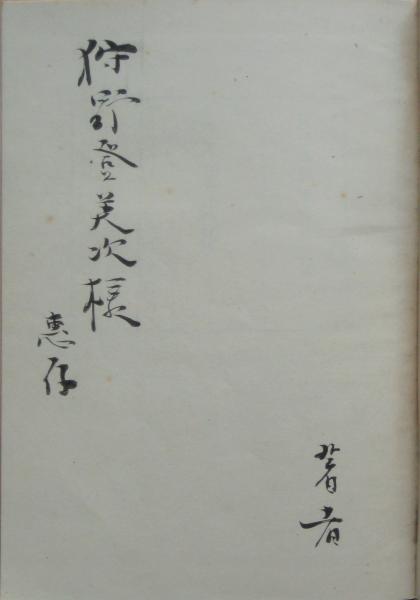 狩野登美次様
恵存
著者